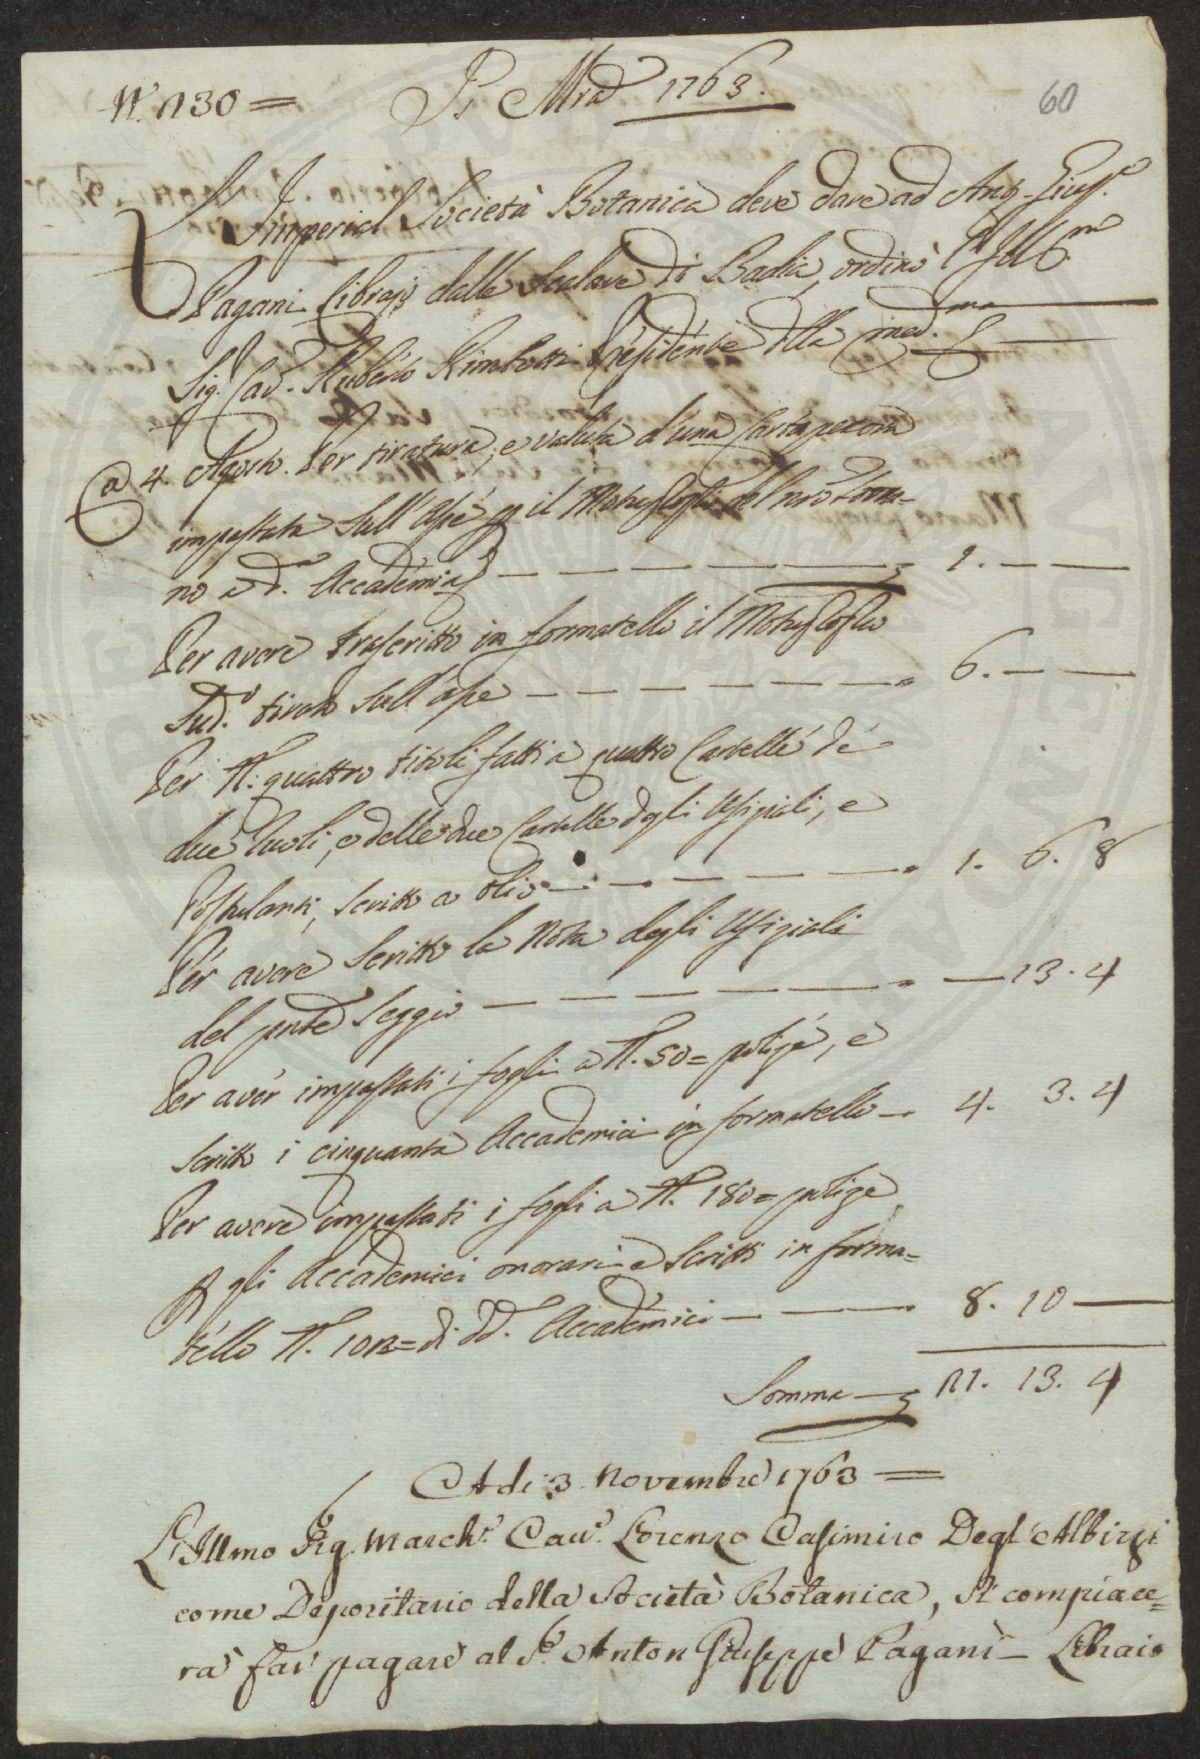 N. 1730 =
P. Mia 1763.
60
L'Imperial Società Botanica deve dare ad Ant. Gius.e
Pagani Libraio dalle Scalere di Badia, ordinò l'Ill.mo
Sig. Cav. Ruberto Presidente della med.ma
a 4. Agosto. Per tiratura, e valuta d'una Cartapecora
impastata sull'Ape p il Motuproprio del
no a d.a Accademia — 1. —
Per avere trascritto in formatello il Motuproprio
Sud.o tirato sull'ape — 6. —
Per N. quattro titoli fatti a quattro Cartelle de
due Ruoli, e delle due Cartelle degli Ufiziali, e
Postulanti, scritto a olio — 1. 6. 8
Per avere scritto la Nota degli Ufiziali
del pnte Seggio — 13. 4
Per aver impastati i fogli a N. 50 = polize, e
scritto i cinquanta Accademici in formatello — 4. 3. 4
Per avere impastati i fogli a N. 180 = polize
p gli Accademici onorari e scritti in forma=
tello N. 102 = di dd. Accademici — 8. 10 —
Somma — 21. 13. 4
Adi 3 Novembre 1763 =
L'Illmo Sig. March.e Cav.e Lorenzo Casimiro Degl'Albizzi
come Depositario della Società Botanica, si compiace=
rà far pagare al S.e Anton Giuseppe Pagani Libraio